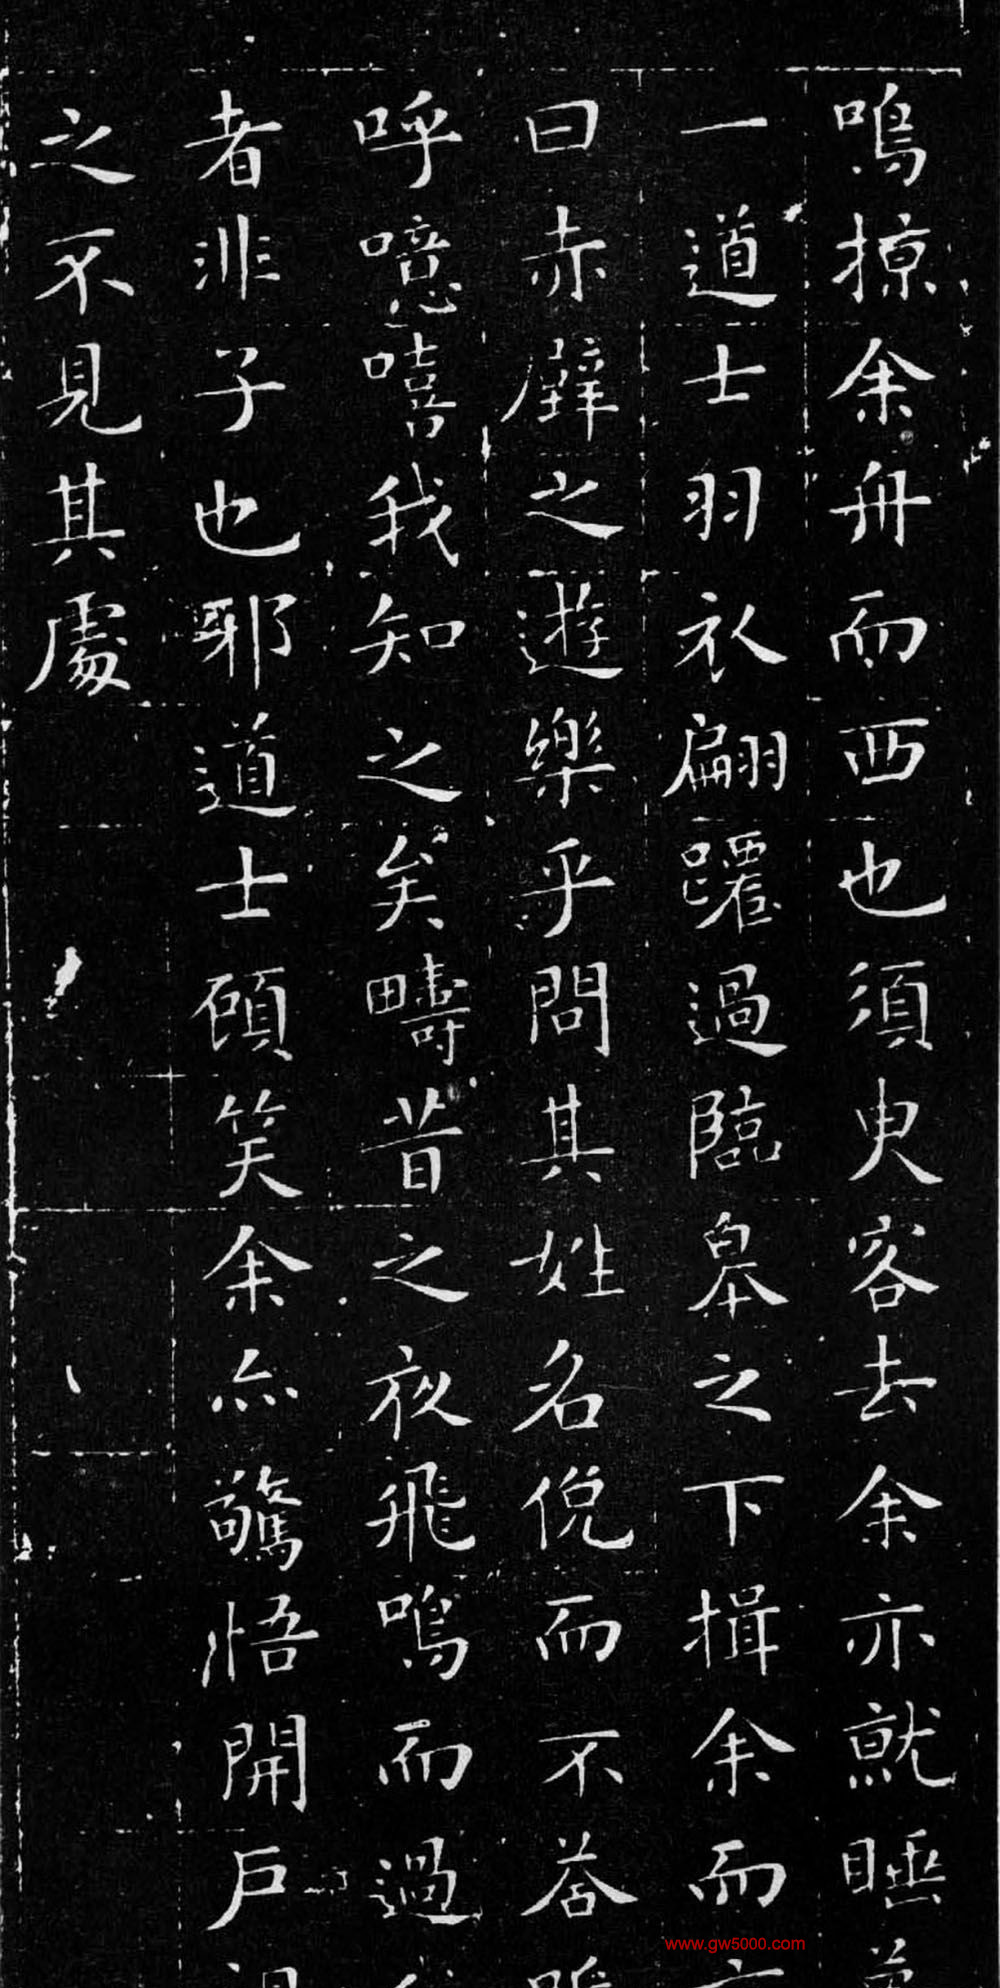 鳴掠余舟而西也須臾客去余亦就睡
一道士羽衣翩躚過臨皋之下揖余而
曰赤壁之遊樂乎問其姓名俛而不荅
呼噫嘻我知之矣疇昔之夜飛鳴而過
者非子也邪道士顧笑余亦驚悟開戶
之不見其處
www.gw5000.com